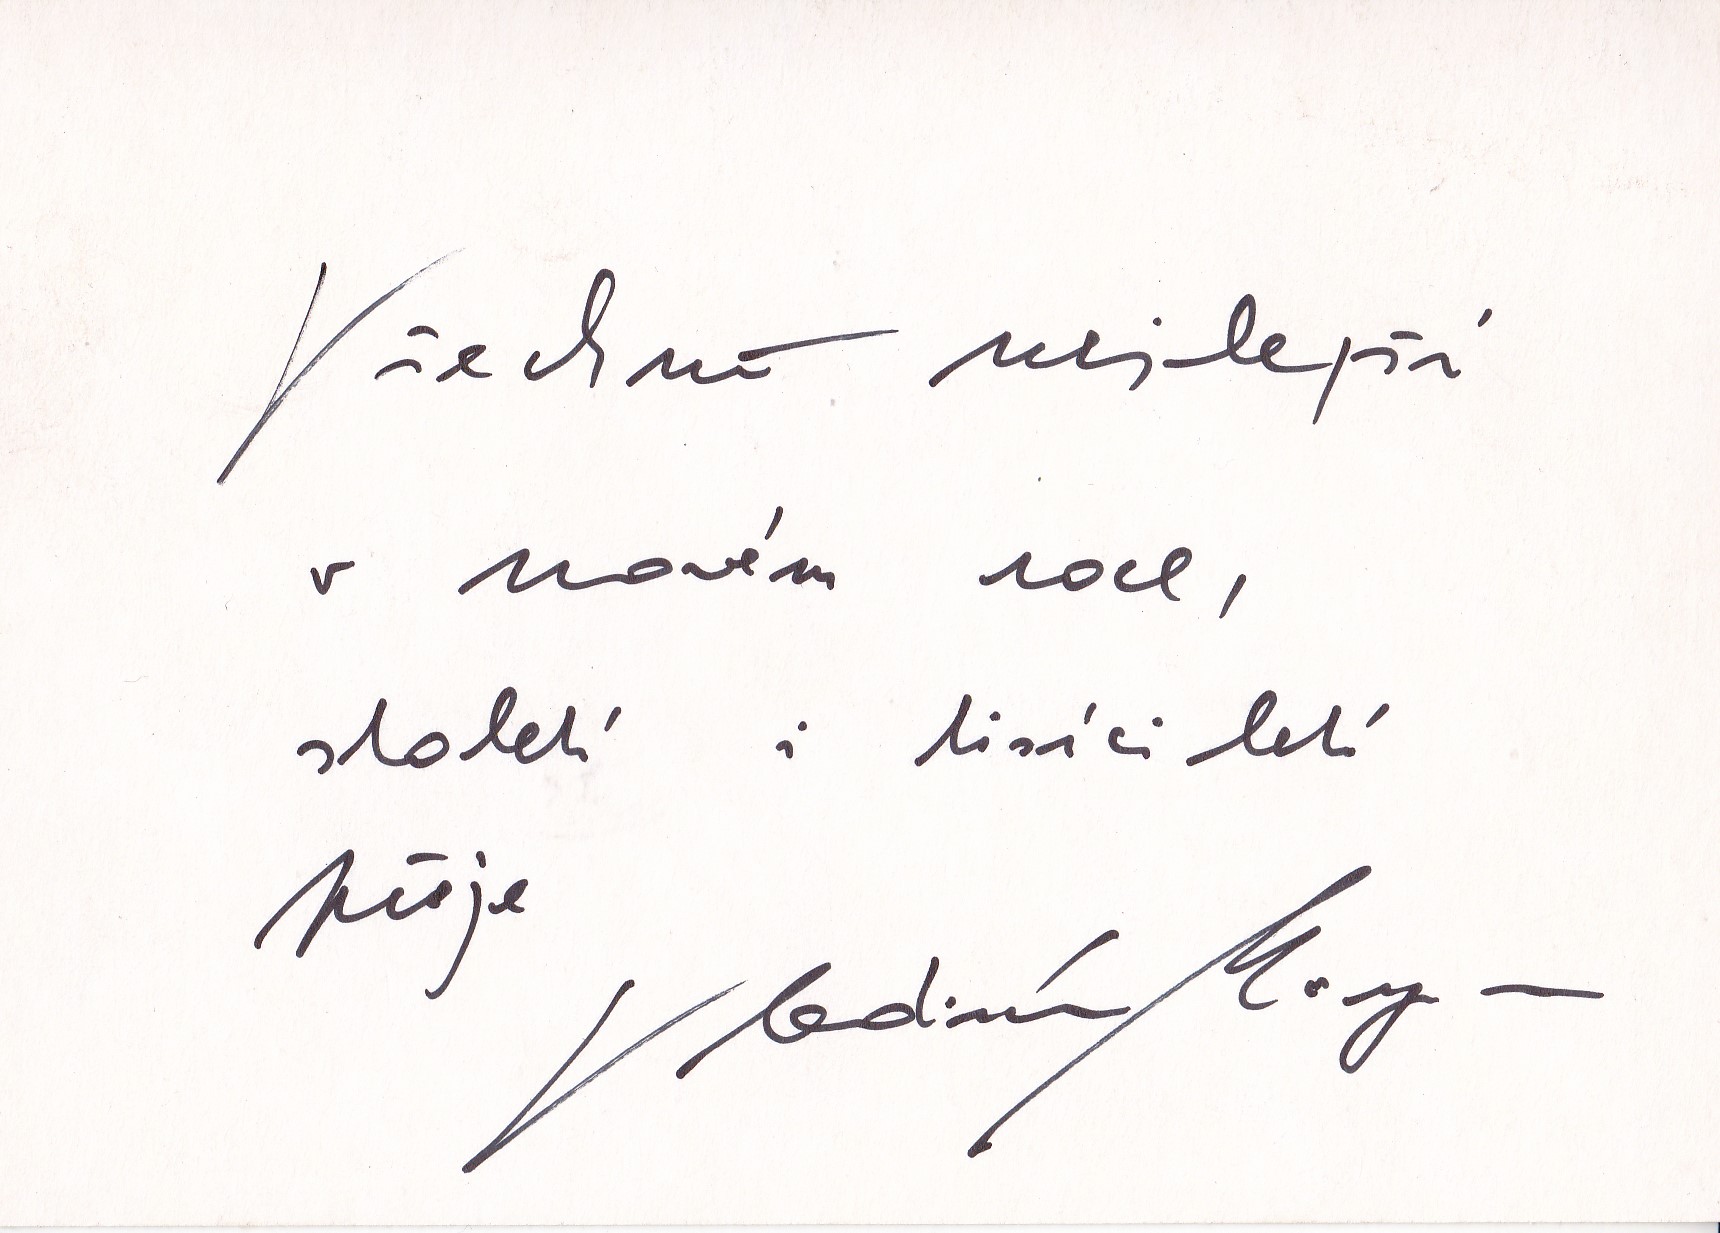 Všechno nejlepší
v novém roce,
století i tisíciletí
přeje
Vladimír